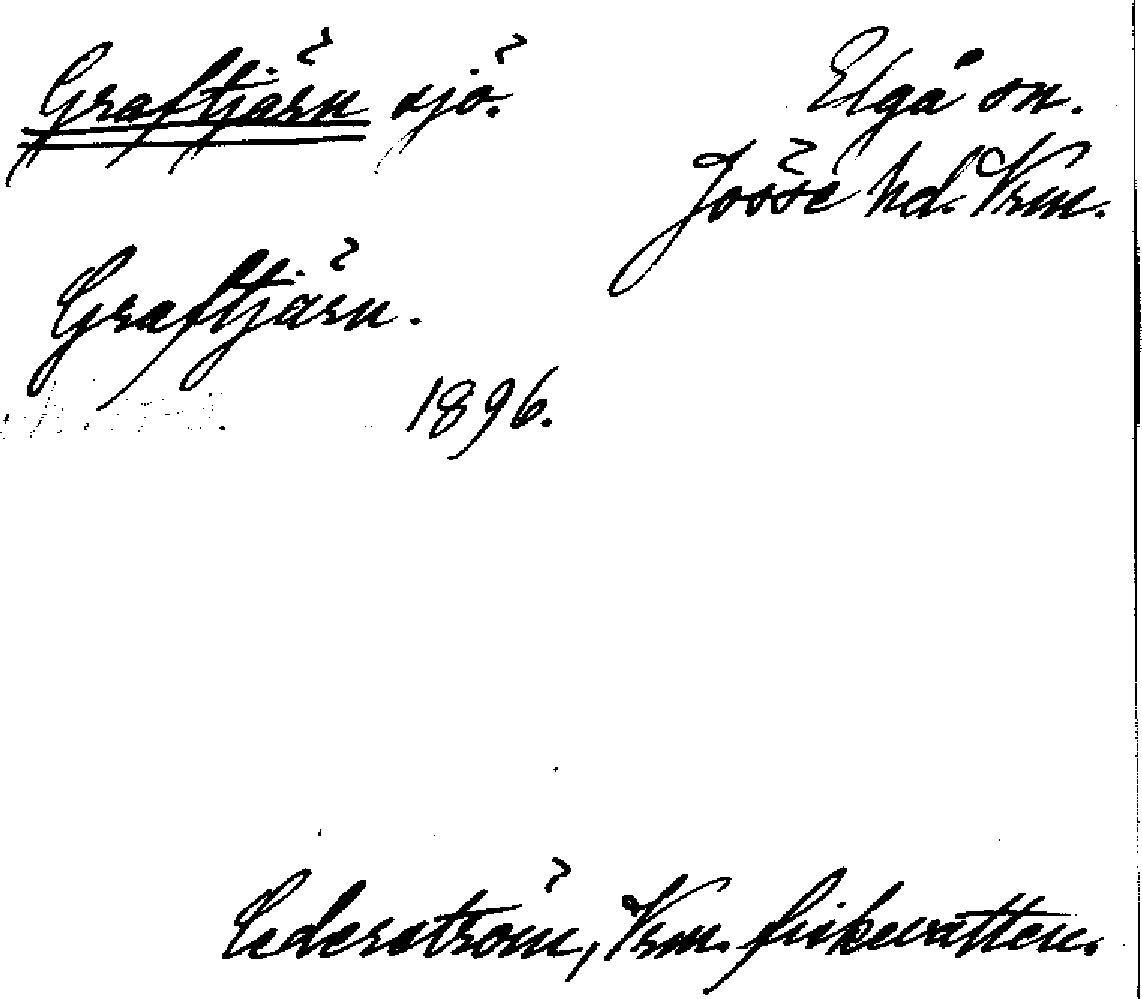 Graftjärn sjö.
Elgå sn.
Jösse hd. Vrm.
Graftjärn.
1896.
Cederström, Vrm. fiskevatten.